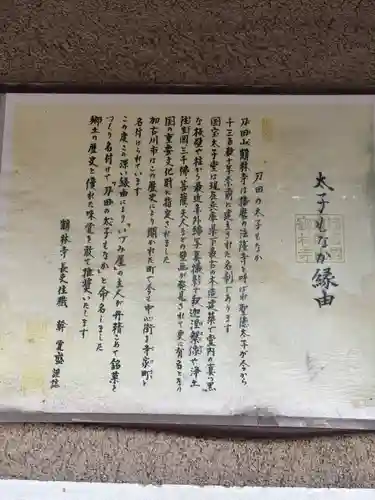 太子もなか縁由
刀田の太子もなか
刀田山鶴林寺は播磨の法隆寺と呼ばれ聖徳太子が今から
千三百数十年余前に建立された名刹であります
国宝太子堂は現在兵庫県下最古の木造建築で堂内の真っ黒
な板壁や柱から最近赤外線写真撮影で釈迦涅槃像や浄土
来迎図三千佛菩薩天人などの壁画が発見されて更に有名となり
国の重要文化財に指定されました
加古川市はこの歴史により開かれた町で今も中心街を寺家町と
名付けられています
この度この深い縁由によりいづみ屋の主人が丹精こめて銘菓を
つくり名付けて〝刀田の太子もなか〟と命名しました
郷土の歴史と優れた味覚を敢て推奨いたします
鶴林寺長老住職 幹 覚盛 謹誌